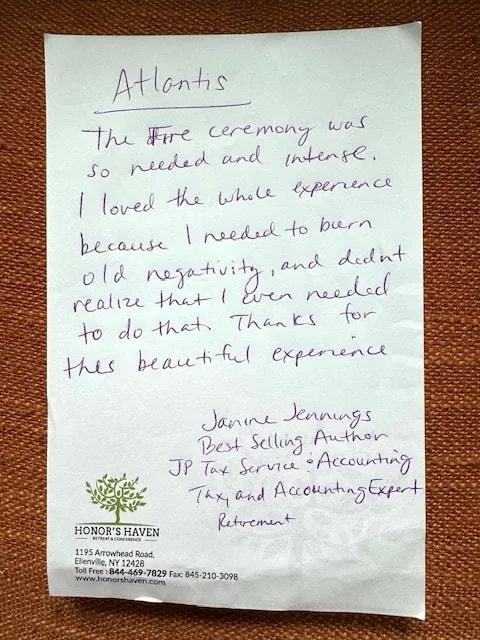 Atlantis
The Fire ceremony was
so needed and intense.
I loved the whole experience
because I needed to burn
old negativity, and didnt
realize that I even needed
to do that. Thanks for
this beautiful experience
Janine Jennings
Best Selling Author
JP Tax Service & Accounting
Tax, and Accounting Expert
Retirement
HONOR'S HAVEN
RETREAT & CONFERENCE
1195 Arrowhead Road,
Ellenville, NY 12428
Toll Free : 844-469-7829 Fax: 845-210-3098
www.honorshaven.com